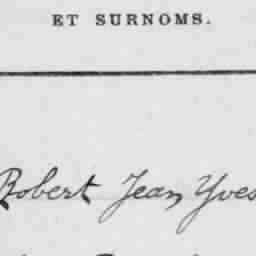 ET SURNOMS.
Robert Jean Yves